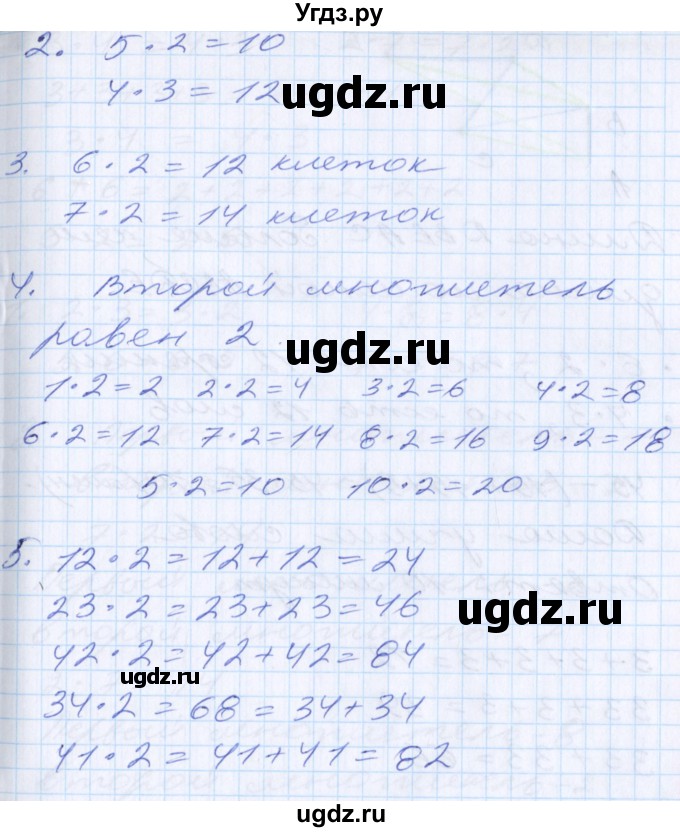 Угдз.ру
2. 5 · 2 = 10
4 · 3 = 12
ugdz.ru
3. 6 · 2 = 12 клеток
7 · 2 = 14 клеток
4. Второй множитель
равен 2
ugdz.ru
1 · 2 = 2 2 · 2 = 4 3 · 2 = 6 4 · 2 = 8
6 · 2 = 12 7 · 2 = 14 8 · 2 = 16 9 · 2 = 18
5 · 2 = 10 10 · 2 = 20
5. 12 · 2 = 12 + 12 = 24
23 · 2 = 23 + 23 = 46
ugdz.ru
42 · 2 = 42 + 42 = 84
ugdz.ru
34 · 2 = 68 = 34 + 34
41 · 2 = 41 + 41 = 82
ugdz.ru